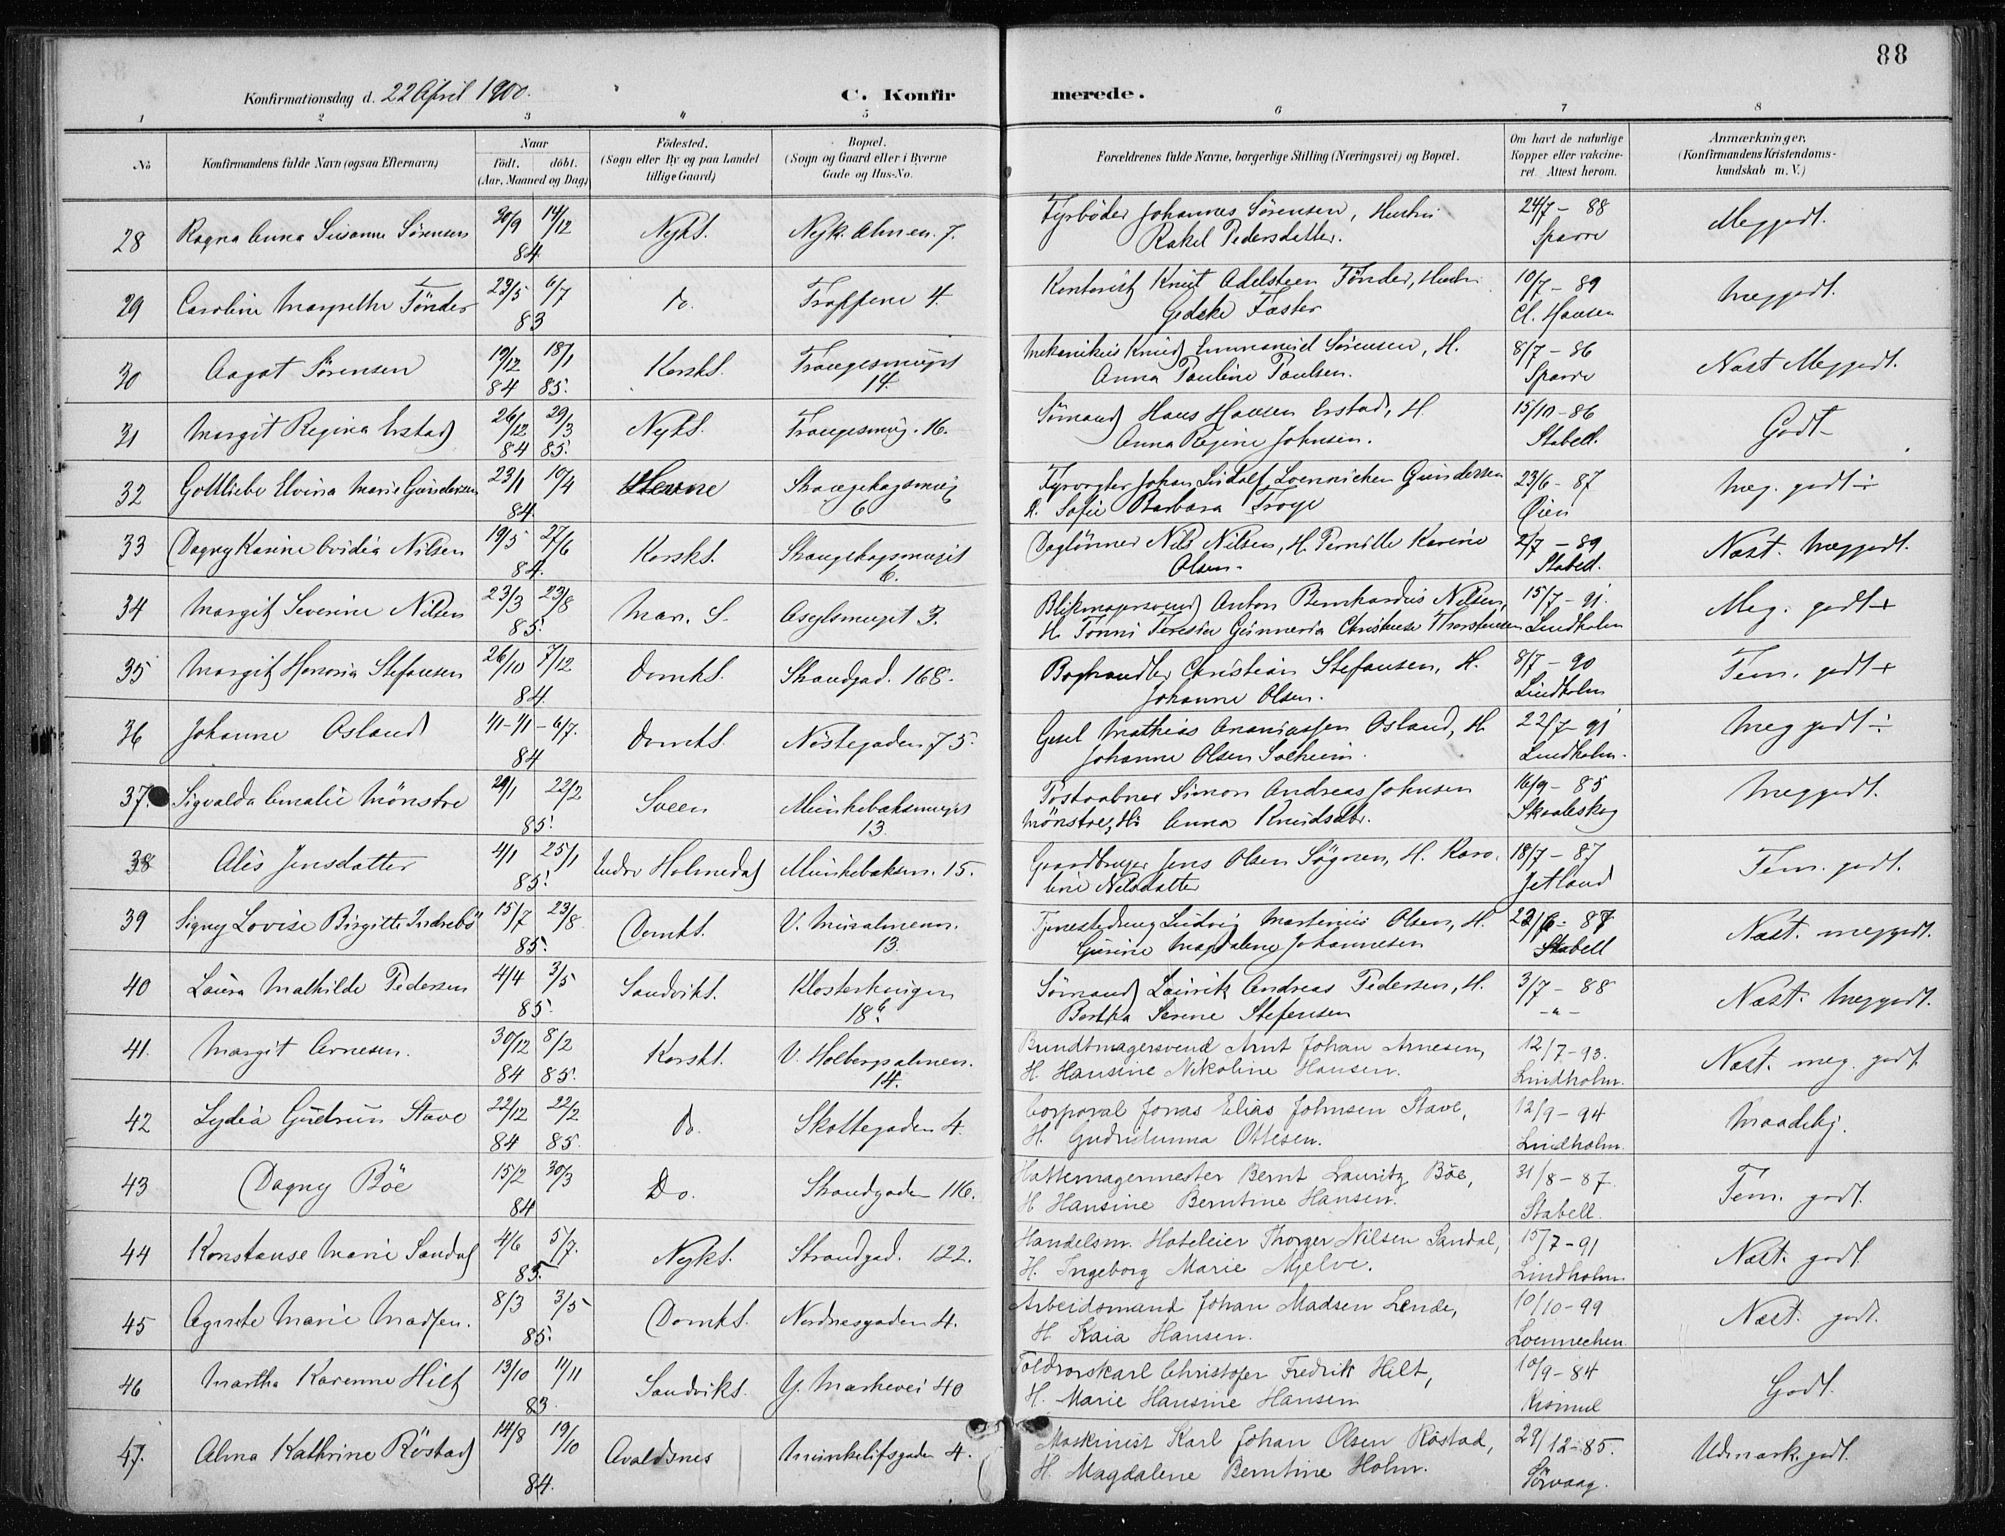 88
Konfirmationsdag d. 22 April 1900.
C. Konfirmerede.
1 2 3 4 5 6 7 8
No
Konfirmandens fulde Navn (ogsaa Efternavn)
Naar
født. døbt.
(Aar, Maaned og Dag)
Fødested.
(Sogn eller By og paa Landet
tillige Gaard)
Bopæl.
(Sogn og Gaard eller i Byerne
Gade og Hus-No.
Forældrenes fulde Navne, borgerlige Stilling (Næringsvei) og Bopæl.
Om havt de naturlige
Kopper eller vakcine-
ret. Attest herom.
Anmærkninger.
(Konfirmandens Kristendoms-
kundskab m. V.)
28 Ragna Anna Susanne Sørensen 30/9 14/12 Nykt. Nyk. Almen. 7. Fyrbøder Johannes Sørensen, Hustru 24/7 - 88 Meggodt.
84 Rakel Pedersdatter. Sparre
29 Caroline Margrethe Tønder 23/5 6/7 Do. Trappene 4. Kontorist Knut Adelsteen Tønder, Hustru 10/7 - 89 Meggodt.
83 Gedske Faster Cl. Hansen
30 Aagot Sørensen 19/12 18/1 Korskt. Trangesmuget Mekanikus Knud Emmanuel Sørensen, H. 8/7 - 86 Næst Meggodt.
84 85. 14. Anna Pauline Paulsen. Sparre
31 Margit Regina Erstad 26/12 29/3 Nykt. Trangesmug. 16. Sømand Hans Hansen Erstad, H 15/10 - 86 Godt
84 85. Anna Regine Johnsen. Stabell.
32 Gottliebe Elvina Marie Gundersen 23/1 10/4 Hevne Skougehagsmug Fyrvogter Johan Ludolf Loennichen Gundersen 23/6 - 87 Meg. godt ÷
84. 6 H. Sofie Barbara Troye Øien
33 Dagny Karine Ovidia Nilsen 19/5 27/6 Korskt. Skougehagsmuget Daglønner Nils Nilsen, H. Pernille Karine 2/7 - 89 Næst. Meggodt.
84. 6. Olsen. Stabell.
34 Margit Severine Nilsen 23/3 23/8 Mar. S. Asylsmuget 3. Blikmagersvend Anton Bernhardus Nilsen, 15/7 - 91. Meg. godt +
85. H. Tonni Teresia Gunneria Christense Thorstensen Lindholm
35 Margit Honoria Stefansen 26/10 7/12 Domkt. Strandgad. 168. Boghandler Christian Stefansen, H. 8/7 - 90 Tem. godt +
84. Johanne Olsen. Lindholm
36 Johanne Osland 11 - 11 - 6/7. Domkt. Nøstegaden 75. Gesel Mathias Ananiassen Osland, H 22/7 - 91 Meg godt ÷
84 Johanne Olsen Solheim. Lindholm.
37. Sigvalda Amalie Mønstre 29/1 22/2 Sveen Munkebaksmuget Postaabner Simon Andreas Johnsen 16/9 - 85 Meggodt.
85. 13. Mønstre, H. Anna Knudsdtr. Skaaleskog
38 Alis Jensdatter 4/1 25/1 Indre Holmedal Munkebaksm. 15. Gaardbruger Jens Olsen Søgnen, H. Karo- 18/7 - 87 Tem. godt.
85. line Nilsdatter Jetland
39 Signy Lovise Birgitte Indrebø 15/7 23/8 Domkt. V. Muralmenn. Tjenestedreng Ludvig Martinius Olsen, H. 22/6 - 87 Næst. meggodt.
85. 13. Gurine Magdalene Johannesen Stabell
40 Laura Mathilde Pedersen 4/4 3/5 Sandvikt. Klosterhaugen Sømand Laurik Andreas Pedersen, H. 3/7 - 88 Næst. Meggodt.
85. 18 Bertha Serine Stefensen - " -
41. Margit Arnesen. 30/12 8/2 Korskt. V. Holbergsalmen. Bundtmagersvend Arnt Johan Arnesen, 12/7 - 93. Næst. meg. godt
84 85. 14. H. Hansine Nikoline Hansen. Lindholm.
42 Lydia Gudrun Stave 22/12 22/2 Do. Skottegaden 4. Corporal Jonas Elias Johnsen Stave, 12/9 - 94 Maadelig.
84 85. H. Gudridunna Ottesen. Lindholm.
43 Dagny Bøe 15/2 30/3 Do. Strandgaden 116. Hattemagermester Bernt Lauritz Bøe, 31/8 - 87. Tem. godt.
84 H Hansine Berntine Hansen. Stabell.
44 Konstanse Marie Sandal 4/6 5/7. Nykt. Strandgad. 122. Handelsm. Hoteleier Thorger Nilsen Sandal, 15/7 - 91 Næst. godt.
85. H. Ingeborg Marie Mjelve. Lindholm.
45 Agnete Marie Madsen. 8/3 3/5 Domkt. Nordnesgaden 4. Arbeidsmand Johan Madsen Lende, 10/10 - 99 Næst. godt.
85. H Kaia Hansen. Loennechen.
46 Martha Karenne Hilt 13/10 11/11 Sandvikt. Y. Markevei 40 Toldrorskarl Christofer Fredrik Hilt, 10/9 - 84 Godt.
83. H. Marie Hansine Hansen
47. Alma Kathrine Røstad 14/8 19/10 Avaldsnes Munkelifsgaden 4. Maskinist Karl Johan Olsen Røstad, 29/12 - 85. Udmærk. godt.
84. H. Magdalene Berntine Holm. Sørvaag.